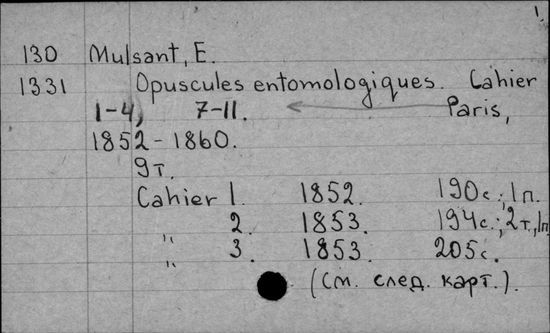 1.
130 Mulsant, E.
1331 Opuscules entomologiques. Cahier
1-4, 7-11. Paris,
1852-1860.
9т.
Cahier 1. 1852. 190с.; 1п.
" 2. 1853. 194с.; 2т., 1п
" 3. 1853. 205с.
(См. след. карт.).